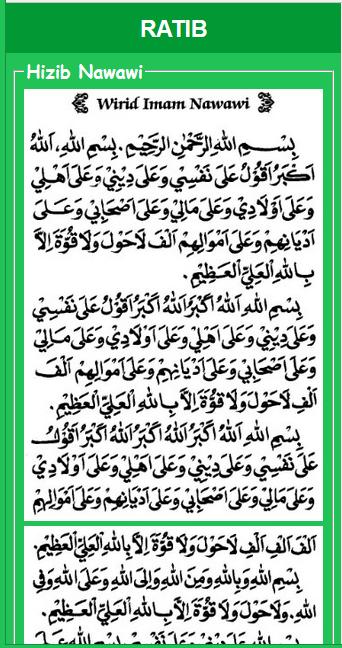 RATIB
Hizib Nawawi
Wirid Imam Nawawi
بِسْمِ اللهِ الرَّحْمٰنِ الرَّحِيْمِ. بِسْمِ اللهِ، اَللهُ
اَكْبَرُ اَقُوْلُ عَلَى نَفْسِي وَعَلَى دِيْنِي وَعَلَى اَهْلِي
وَعَلَى اَوْلَادِيْ وَعَلَى مَالِيْ وَعَلَى اَصْحَابِيْ وَعَلَى
اَدْيَانِهِمْ وَعَلَى اَمْوَالِهِمْ اَلْفَ لَاحَوْلَ وَلَا قُوَّةَ اِلاَّ
بِاللهِ الْعَلِيِّ الْعَظِيْمِ.
بِسْمِ اللهِ اَللهُ اَكْبَرُ اَللهُ اَكْبَرُ اَقُوْلُ عَلَى نَفْسِيْ
وَعَلَى دِيْنِيْ وَعَلَى اَهْلِيْ وَعَلَى اَوْلَادِيْ وَعَلَى مَالِيْ
وَعَلَى اَصْحَابِيْ وَعَلَى اَدْيَانِهِمْ وَعَلَى اَمْوَالِهِمْ اَلْفَ
اَلْفِ لَاحَوْلَ وَلَا قُوَّةَ اِلاَّ بِاللهِ الْعَلِيِّ الْعَظِيْمِ.
بِسْمِ اللهِ اَللهُ اَكْبَرُ اَللهُ اَكْبَرُ اَللهُ اَكْبَرُ اَقُوْلُ
عَلَى نَفْسِيْ وَعَلَى دِيْنِيْ وَعَلَى اَهْلِيْ وَعَلَى اَوْلَادِيْ
وَعَلَى مَالِيْ وَعَلَى اَصْحَابِيْ وَعَلَى اَدْيَانِهِمْ وَعَلَى اَمْوَالِهِمْ
اَلْفَ اَلْفِ اَلْفِ لَاحَوْلَ وَلَا قُوَّةَ اِلاَّ بِاللهِ الْعَلِيِّ الْعَظِيْمِ.
بِسْمِ اللهِ وَبِاللهِ وَمِنَ اللهِ وَاِلَى اللهِ وَعَلَى اللهِ وَفِى
اللهِ. وَلَاحَوْلَ وَلَا قُوَّةَ اِلاَّ بِاللهِ الْعَلِيِّ الْعَظِيْمِ.
بِسْمِ اللهِ عَلَى دِيْنِيْ وَعَلَى نَفْسِيْ بِسْمِ اللهِ عَلَى